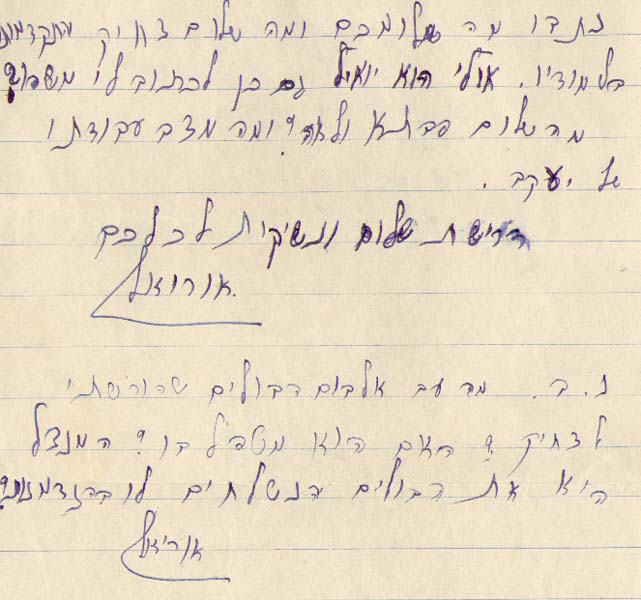 כתבו מה שלומכם ומה שלום צחיק התקדמותו
בלמודיו. אולי הוא יואיל גם כן לכתוב לי משהו?
מה שלום סבתא ולאה? ומה מצב עבודתו
של יעקב.
דרישת שלום ונשיקות לכלכם
אוריאל.
נ.ב. מה עם אלבום הבולים שהורשתי
לצחיק? האם הוא מטפל בו? המנצל
הוא את הבולים הנשלחים לו בהזדמנות?
אוריאל